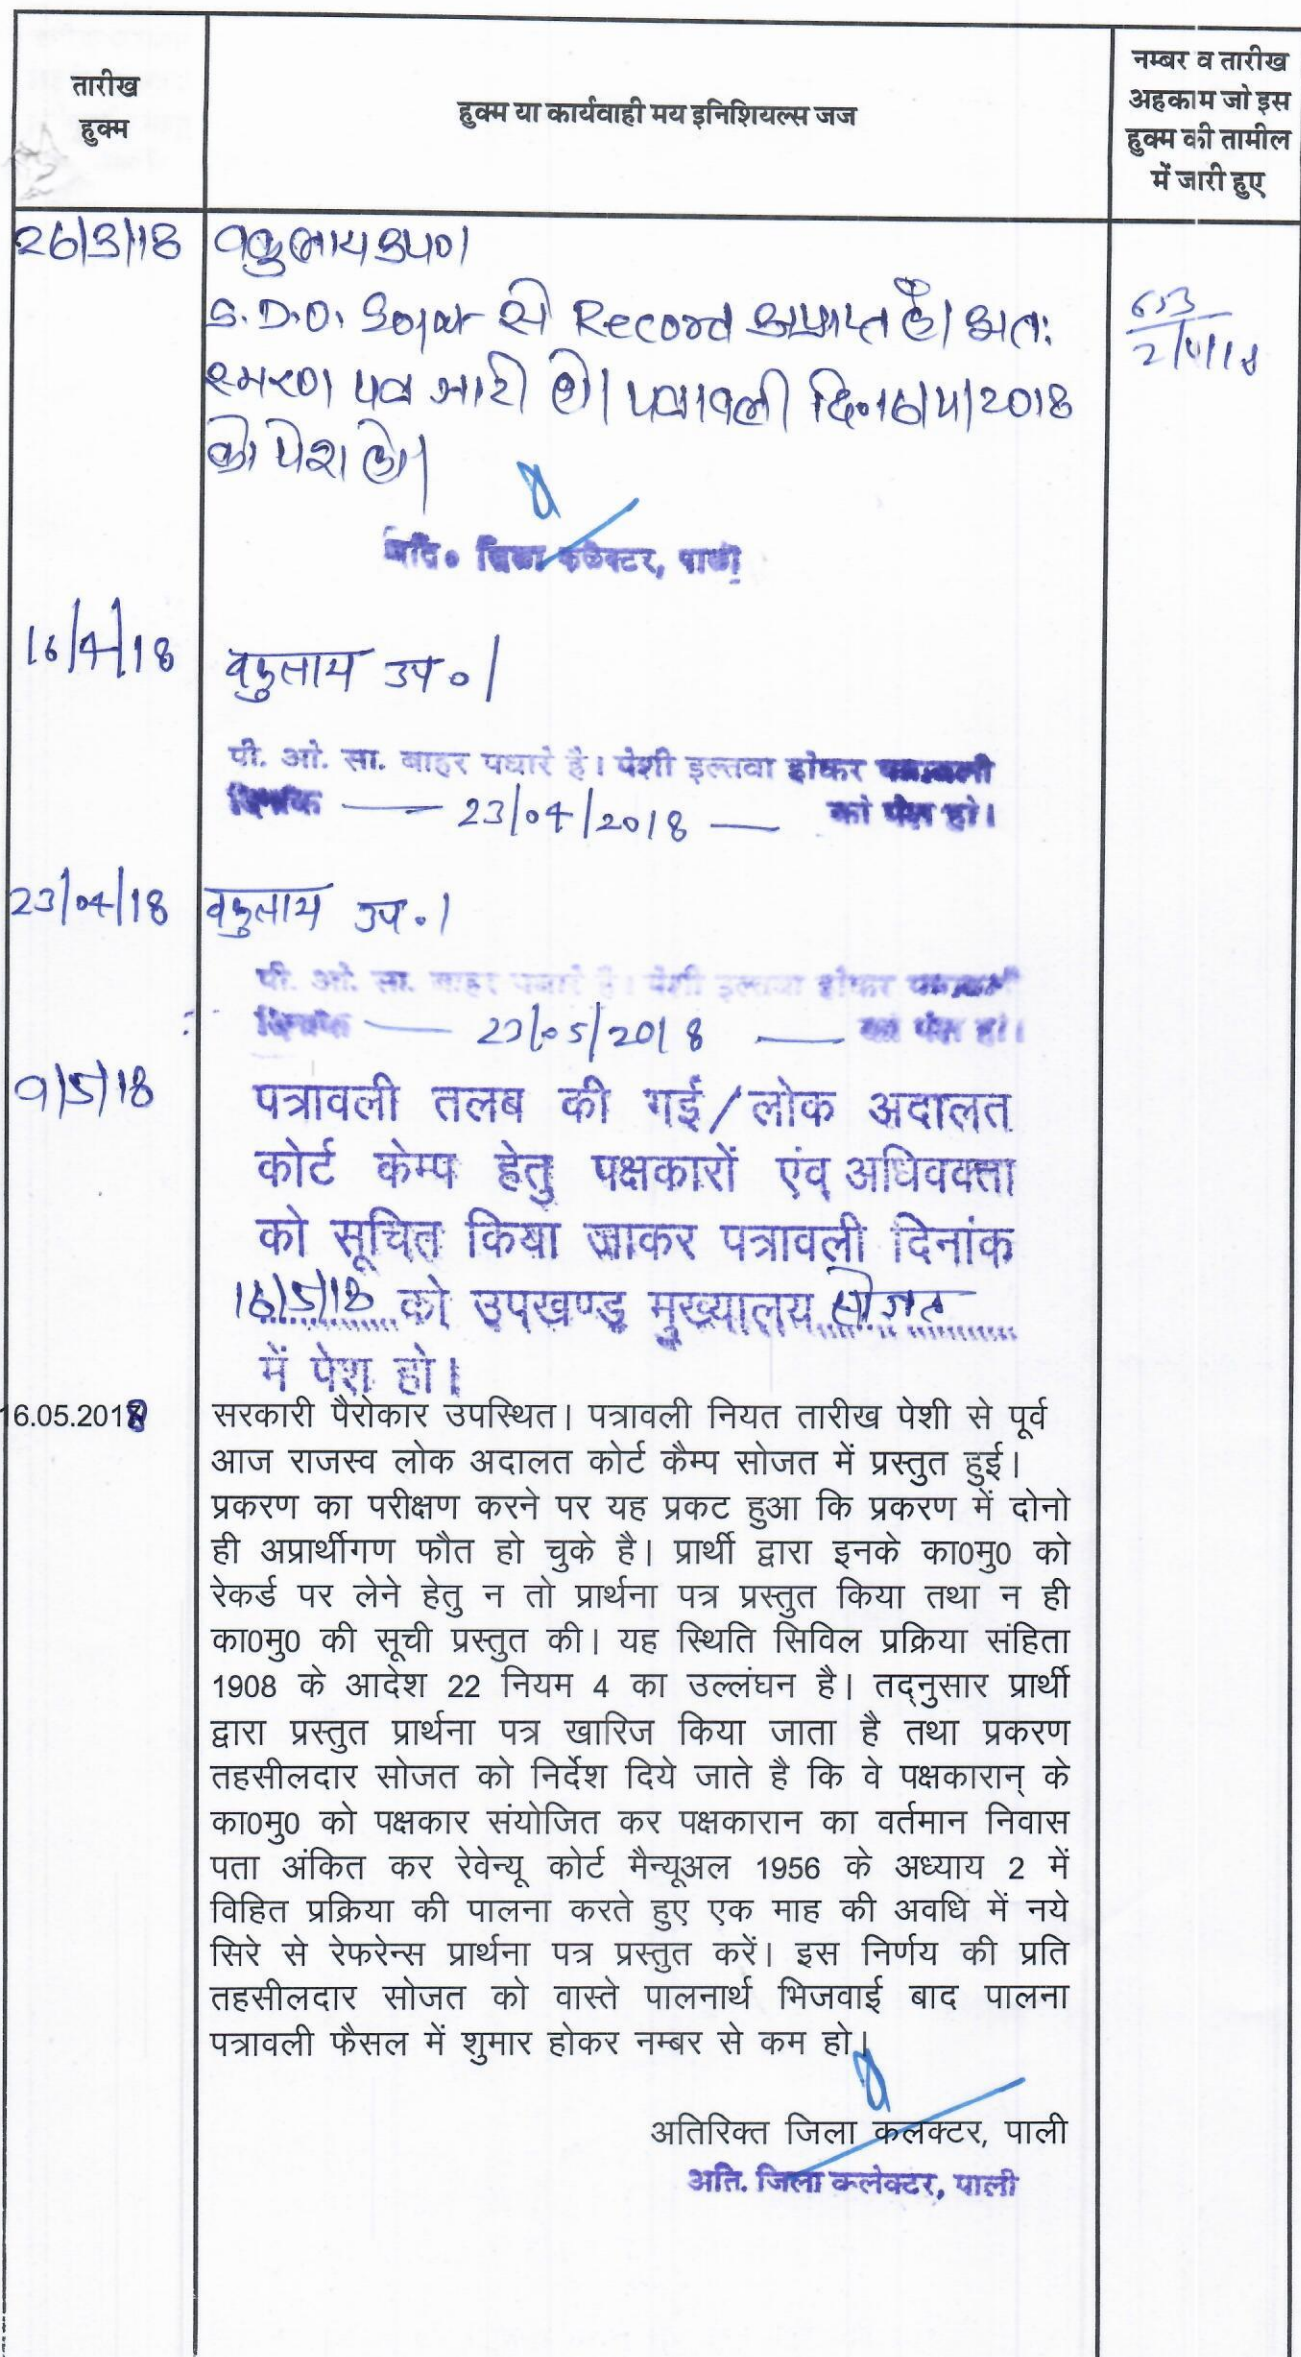 तारीख
हुक्म
हुक्म या कार्यवाही मय इनिशियल्स जज
नम्बर व तारीख
अहकाम जो इस
हुक्म की तामील
में जारी हुए
26/3/18 वकुलाय उप०।
S.D.O. Sojat से Record अप्राप्त है। अतः
स्मरण पत्र जारी हो। पत्रावली दि० 16/4/2018
को पेश हो।
653
2/4/18
अति० जिला कलेक्टर, पाली
16/4/18 वकुलाय उप०।
पी. ओ. सा. बाहर पधारे है। पेशी इल्तवा होकर पत्रावली
दिनांक — 23/04/2018 — को पेश हो।
23/04/18 वकुलाय उप०।
पी. ओ. सा. बाहर पधारे है। पेशी इल्तवा होकर पत्रावली
दिनांक — 23/05/2018 — को पेश हो।
9/5/18 पत्रावली तलब की गई/लोक अदालत
कोर्ट केम्प हेतु पक्षकारों एंव अधिवक्ता
को सूचित किया जाकर पत्रावली दिनांक
16/5/18 को उपखण्ड मुख्यालय सोजत
में पेश हो।
16.05.2018 सरकारी पैरोकार उपस्थित। पत्रावली नियत तारीख पेशी से पूर्व
आज राजस्व लोक अदालत कोर्ट कैम्प सोजत में प्रस्तुत हुई।
प्रकरण का परीक्षण करने पर यह प्रकट हुआ कि प्रकरण में दोनो
ही अप्रार्थीगण फौत हो चुके है। प्रार्थी द्वारा इनके का0मु0 को
रेकर्ड पर लेने हेतु न तो प्रार्थना पत्र प्रस्तुत किया तथा न ही
का0मु0 की सूची प्रस्तुत की। यह स्थिति सिविल प्रक्रिया संहिता
1908 के आदेश 22 नियम 4 का उल्लंघन है। तद्नुसार प्रार्थी
द्वारा प्रस्तुत प्रार्थना पत्र खारिज किया जाता है तथा प्रकरण
तहसीलदार सोजत को निर्देश दिये जाते है कि वे पक्षकारान् के
का0मु0 को पक्षकार संयोजित कर पक्षकारान का वर्तमान निवास
पता अंकित कर रेवेन्यू कोर्ट मैन्यूअल 1956 के अध्याय 2 में
विहित प्रक्रिया की पालना करते हुए एक माह की अवधि में नये
सिरे से रेफरेन्स प्रार्थना पत्र प्रस्तुत करें। इस निर्णय की प्रति
तहसीलदार सोजत को वास्ते पालनार्थ भिजवाई बाद पालना
पत्रावली फैसल में शुमार होकर नम्बर से कम हो।
अतिरिक्त जिला कलक्टर, पाली
अति. जिला कलेक्टर, पाली